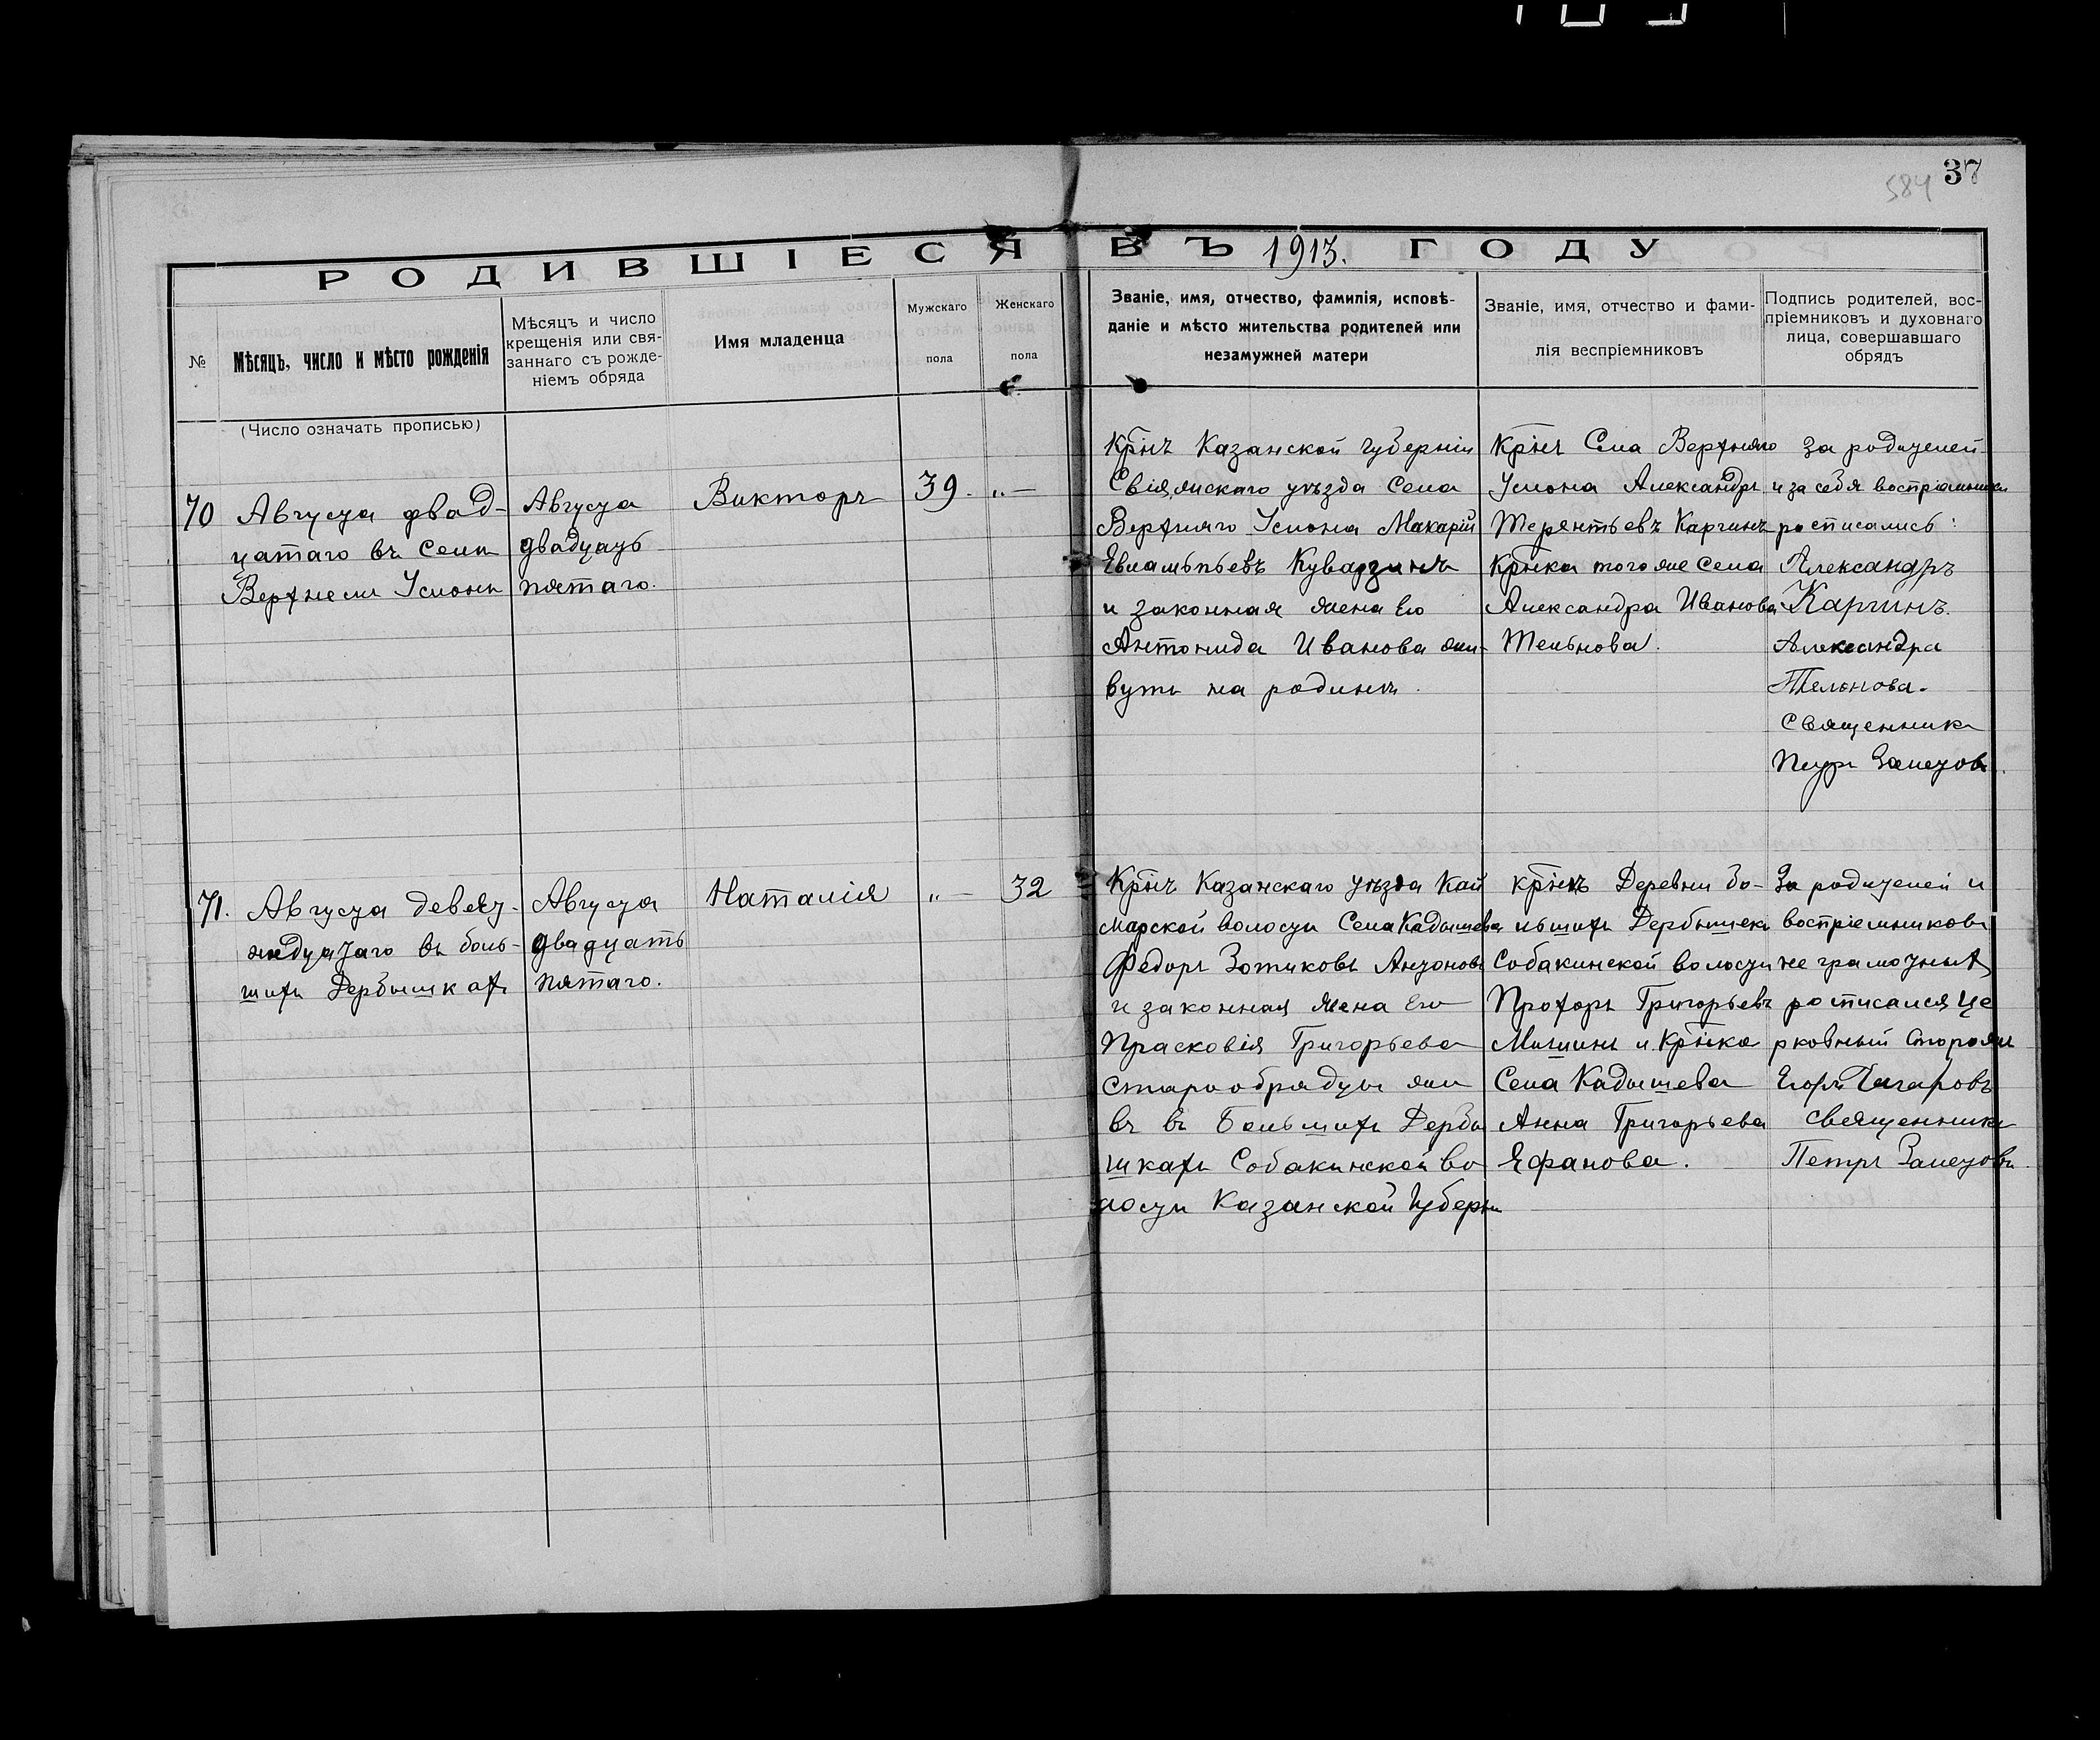 37
584
РОДИВШІЕСЯ ВЪ 1913. ГОДУ
№
Мѣсяцъ, число и мѣсто рожденія
(Число означать прописью)
Мѣсяцъ и число
крещенія или свя-
заннаго съ рожде-
ніемъ обряда
Имя младенца
Мужскаго
пола
Женскаго
пола
Званіе, имя, отчество, фамилія, исповѣ-
даніе и мѣсто жительства родителей или
незамужней матери
Званіе, имя, отчество и фами-
лія веспріемниковъ
Подпись родителей, вос-
пріемниковъ и духовнаго
лица, совершавшаго
обрядъ
70
Августа двад-
цатаго въ селѣ
Верхнемъ Услонѣ
Августа
двадцать
пятаго.
Викторъ
39.
„—
Крнъ Казанской губерніи
Свіяжскаго уѣзда Села
Верхняго Услона Макарій
Евлампьевъ Кувардинъ
и законная жена Его
Антонида Иванова жи-
вутъ на родинѣ.
Крнъ Села Верхняго
Услона Александръ
Терентьевъ Каргинъ
Крнка того же Села
Александра Иванова
Тельнова.
за родителей
и за себя воспріемники
росписались:
Александръ
Каргинъ.
Александра
Тельнова.
Священникъ
Петръ Залетовъ
71.
Августа девят-
надцатаго въ боль-
шихъ Дербышкахъ
Августа
двадцать
пятаго.
Наталія
„—
32
Крнъ Казанскаго уѣзда Кай
марской волости Села Кадышева
Федоръ Зотиковъ Антоновъ
и законная жена Его
Прасковія Григорьева
Старообрядцы жи
въ въ Большихъ Дербы
шкахъ Собакинской во
лости Казанской Губерн
крнъ Деревни Бо-
льшихъ Дербышекъ
Собакинской волости
Прохоръ Григорьевъ
Мишинъ и Крнка
Села Кадышева
Анна Григорьева
Ефанова.
За родителей и
воспріемниковъ
не грамотныхъ
росписался Це
рковный Сторожъ
Егоръ
Священникъ
Петръ Залетовъ.